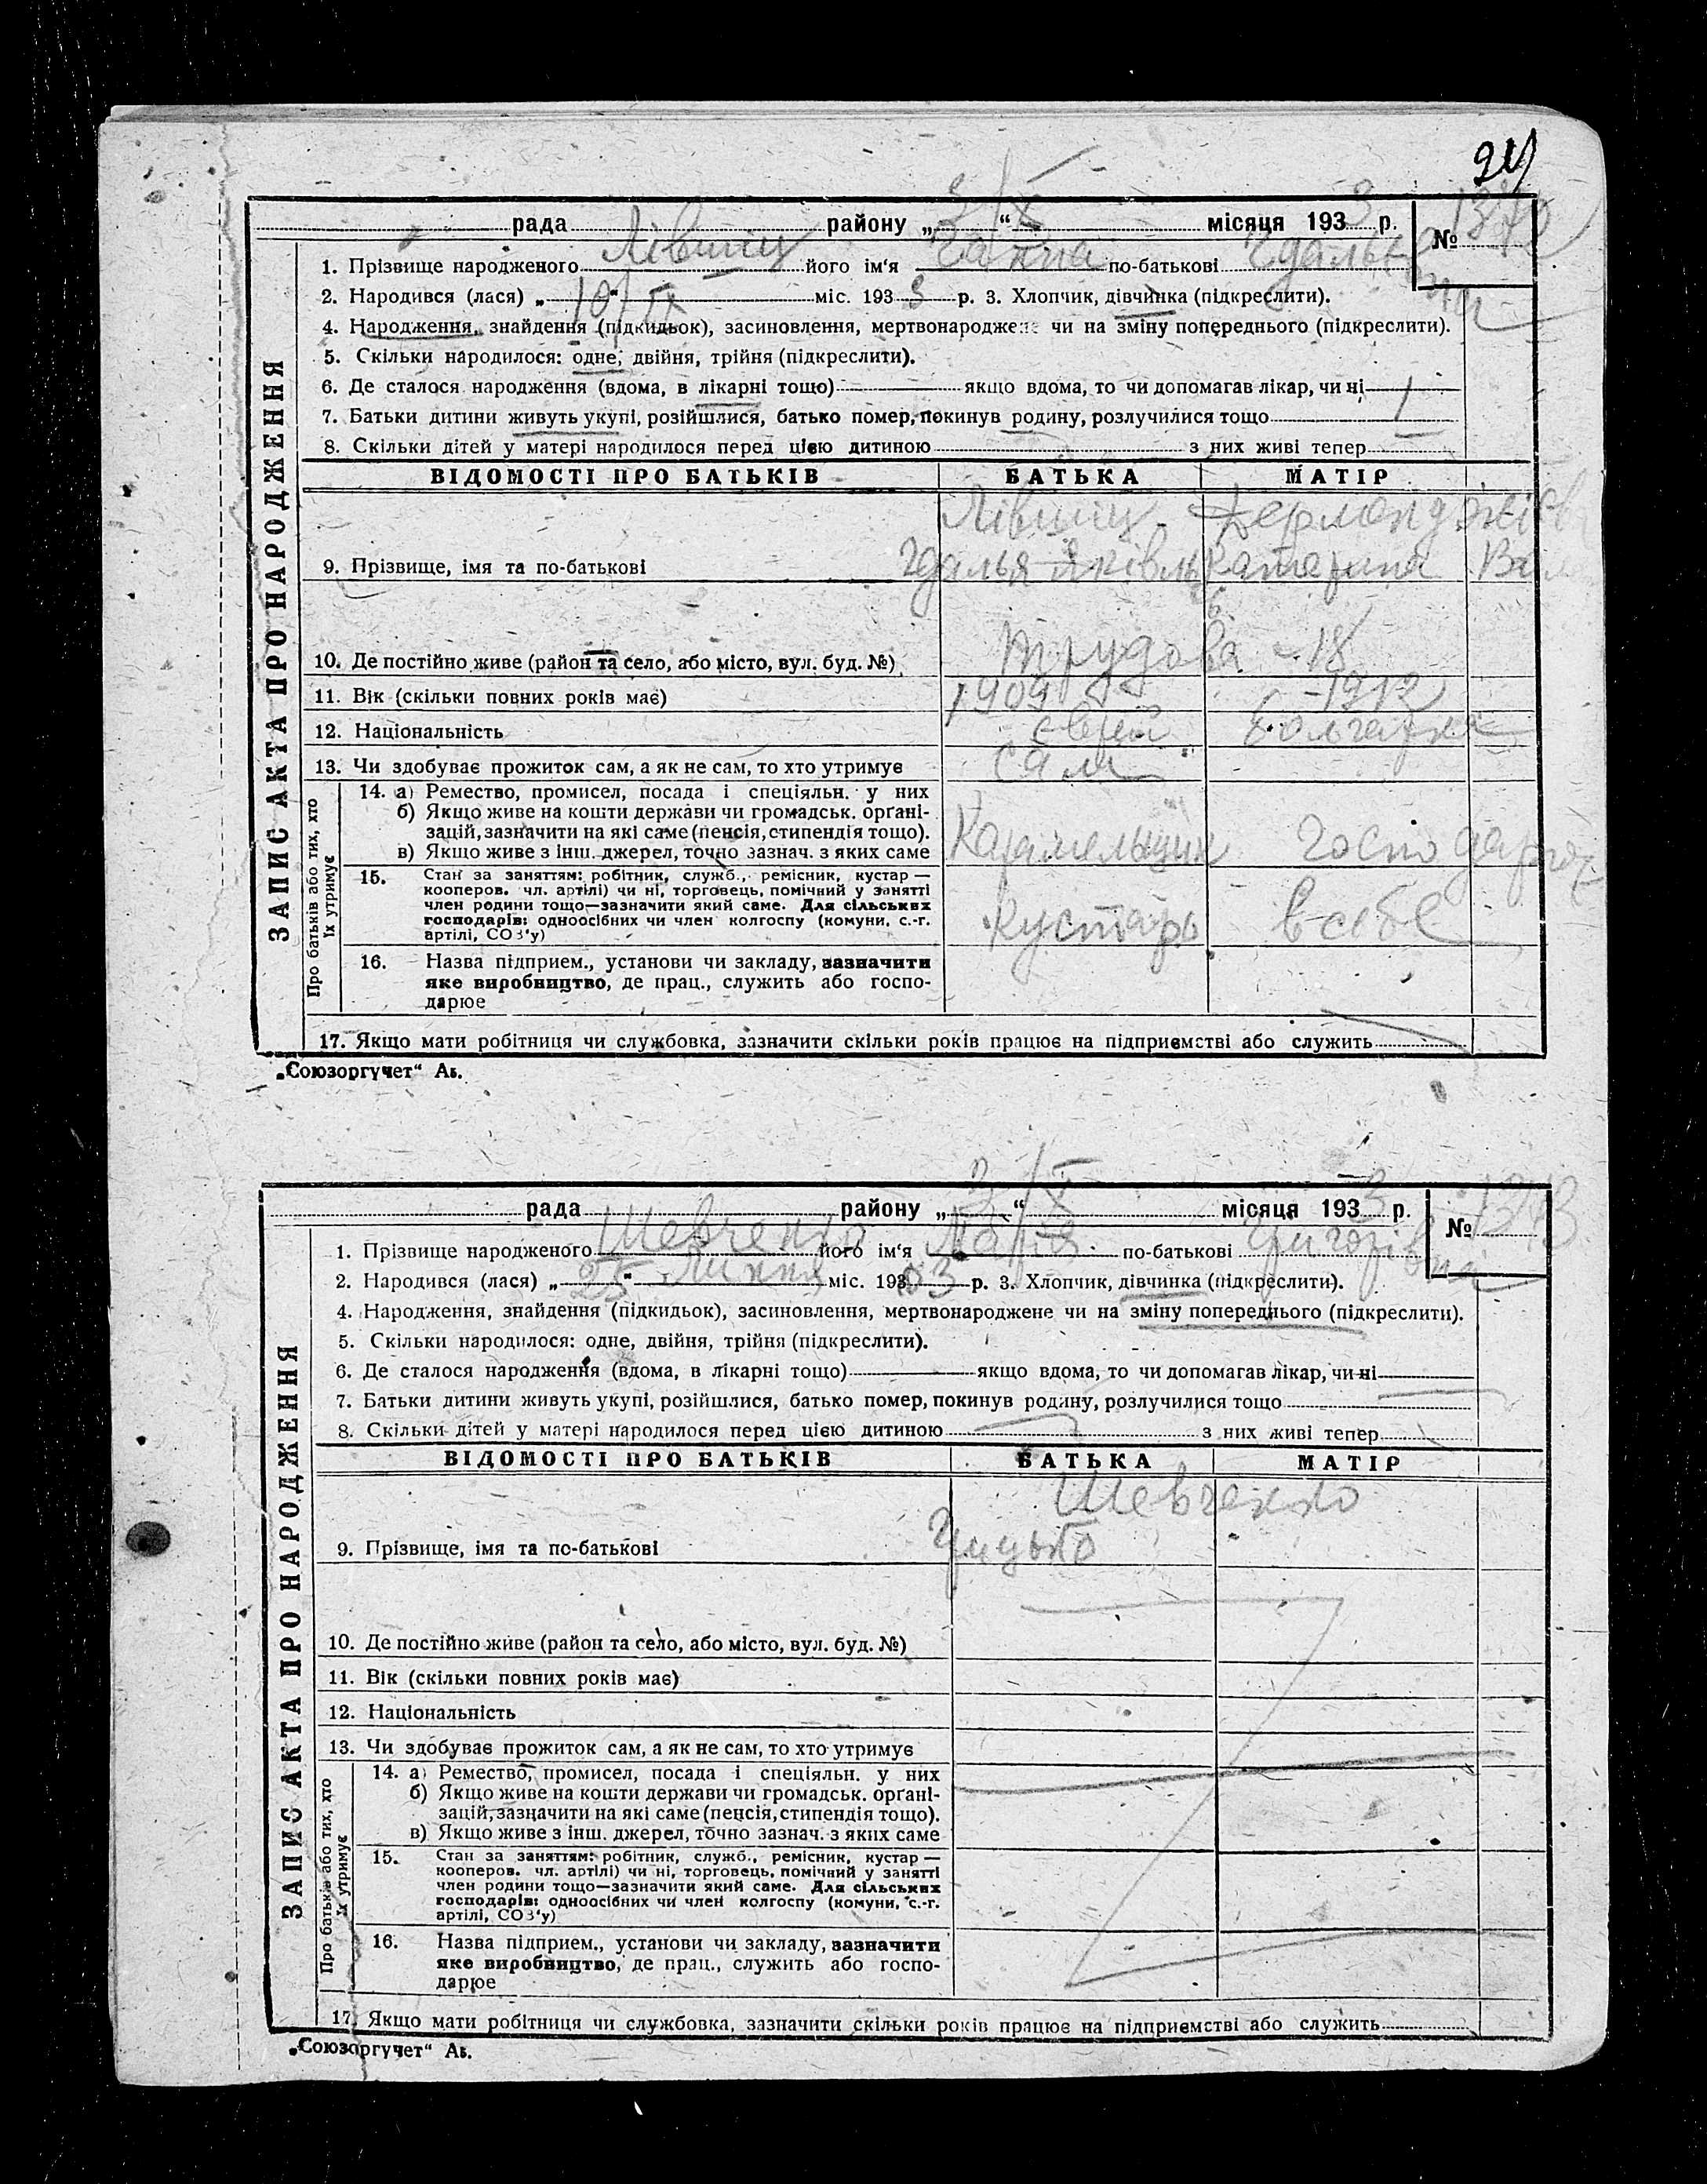 24
рада района „ 3/X “ місяця 1933 р. №
1. Прізвище народженого Лівшиц його ім‘я Ганна по-батькові Гдальєвна
2. Народився (лася) „ 10/IX “ міс. 1933 р. 3. Хлопчик, дівчинка (підкреслити).
4. Народження, знайдення (підкидьок), засиновлення, мертвонароджене чи на зміну попереднього (підкреслити).
5. Скільки народилося: одне, двійня, трійня (підкреслити).
6. Де сталося народження (вдома, в лікарні тощо) якщо вдома, то чи допомагав лікар, чи ні
7. Батьки дитини живуть укупі, розійшлися, батько помер, покинув родину, розлучилися тощо
8. Скільки дітей у матері народилося перед цією дитиною з них живі тепер
ЗАПИС АКТА ПРО НАРОДЖЕННЯ
ВІДОМОСТІ ПРО БАТЬКІВ БАТЬКА МАТІР
Лівшиц
9. Прізвище, імя та по-батькові Гдалья Катерина
10. Де постійно живе (район та село, або місто, вул. буд. №) Трудова - 18
11. Вік (скільки повних років має) 1909 - 1912
12. Національність єврей болгарка
13. Чи здобуває прожиток сам, а як не сам, то хто утримує сам
Про батьків або тих, хто їх утримує
14. а) Ремество, промисел, посада і спеціяльн. у них
б) Якщо живе на кошти держави чи громадськ. орґані-
зацій, зазначити на які саме (пенсія, стипендія тощо).
в) Якщо живе з інш. джерел, точно зазнач. з яких саме Карамельщик
15. Стан за заняттям: робітник, служб., ремісник, кустар —
кооперов. чл. артілі) чи ні, торговець, помічний у занятті
член родини тощо—зазначити який саме. Для сільських
господарів: одноосібних чи член колгоспу (комуни, с.-г. Кустарь в себе
артілі, СОЗ‘у)
16. Назва підприєм., установи чи закладу, зазначити
яке виробництво, де прац., служить або госпо-
дарює
17. Якщо мати робітниця чи службовка, зазначити скільки років працює на підприємстві або служить
„Союзоргучет“ Аь.
рада району „ 3/X “ місяця 1933 р. №
1. Прізвище народженого Шевченко його ім‘я Марія по-батькові Григорівна
2. Народився (лася) „ 25 “ Липня міс. 193 03 р. 3. Хлопчик, дівчинка (підкреслити).
4. Народження, знайдення (підкидьок), засиновлення, мертвонароджене чи на зміну попереднього (підкреслити).
5. Скільки народилося: одне, двійня, трійня (підкреслити).
6. Де сталося народження (вдома, в лікарні тощо) якщо вдома, то чи допомагав лікар, чи ні
7. Батьки дитини живуть укупі, розійшлися, батько помер, покинув родину, розлучилися тощо
8. Скільки дітей у матері народилося перед цією дитиною з них живі тепер
ЗАПИС АКТА ПРО НАРОДЖЕННЯ
ВІДОМОСТІ ПРО БАТЬКІВ БАТЬКА МАТІР
Шевченко
9. Прізвище, імя та по-батькові Грицько
10. Де постійно живе (район та село, або місто, вул. буд. №)
11. Вік (скільки повних років має)
12. Національність
13. Чи здобуває прожиток сам, а як не сам, то хто утримує
Про батьків або тих, хто їх утримує
14. а) Ремество, промисел, посада і спеціяльн. у них
б) Якщо живе на кошти держави чи громадськ. орґані-
зацій, зазначити на які саме (пенсія, стипендія тощо).
в) Якщо живе з інш. джерел, точно зазнач. з яких саме
15. Стан за заняттям: робітник, служб., ремісник, кустар —
кооперов. чл. артілі) чи ні, торговець, помічний у занятті
член родини тощо—зазначити який саме. Для сільських
господарів: одноосібних чи член колгоспу (комуни, с.-г.
артілі, СОЗ‘у)
16. Назва підприєм., установи чи закладу, зазначити
яке виробництво, де прац., служить або госпо-
дарює
17. Якщо мати робітниця чи службовка, зазначити скільки років працює на підприємстві або служить
„Союзоргучет“ Аь.